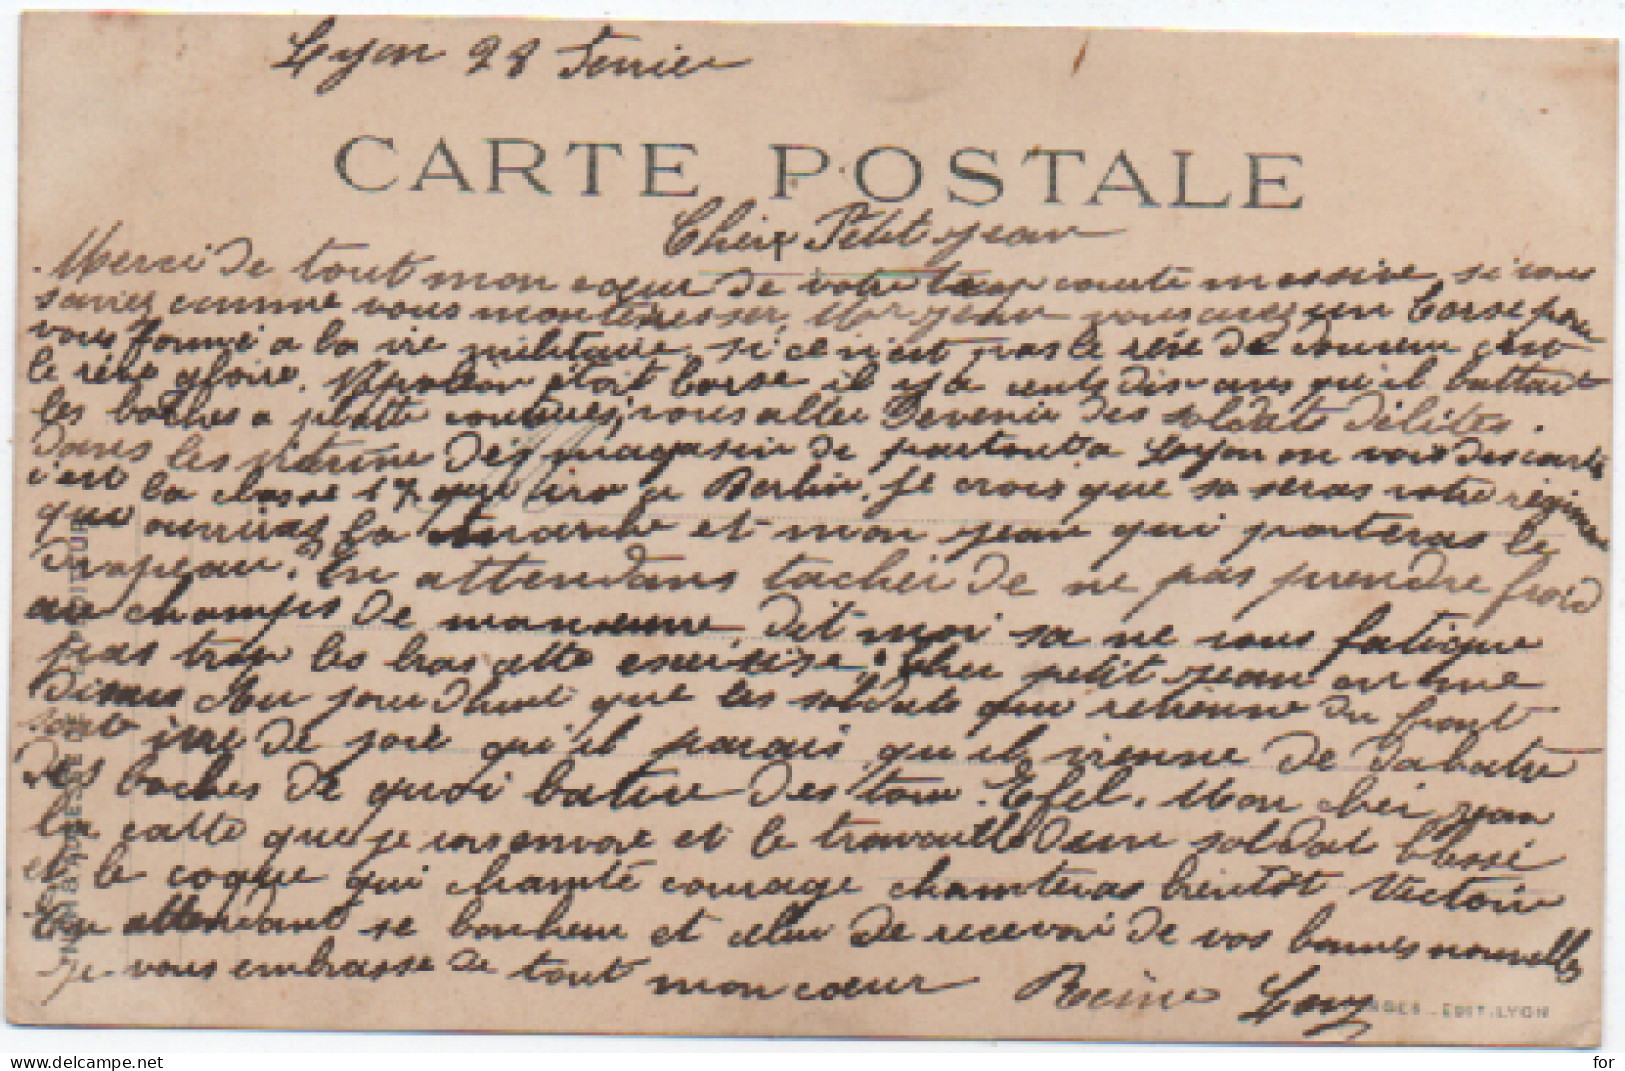 Lyon 28 Fevrier
CARTE POSTALE
Cher Petit jean
Merci de tout mon cœur de votre trop courte missive, si vous
saviez comme vous m'interesser, Mon jean vous avez un Corse pour
vous formé a la vie militaire, si ce n'est pas le rêve de c'est
le rêve gloire. Napoléon était Corse il y a cents dix ans qu'il battait
les boches a platte coutures, vous aller devenir des soldats délites.
dans les vitrine des magasin de partout a Lyon on vois des carte
c'est la classe 17 qui ira a Berlin, je crois que sa seras votre régiment
qui ouvriras la marche et mon jean qui porteras le
drapeau. En attendans tacher de ne pas prendre froid
au champs de maneuvre, dit moi sa ne vous fatigue
pas trop les bras cette exercise. Cher petit jean on me
disais Au jourdhui que les soldats qui revienne du front
sont ivre de joie qu'il parais qu'il vienne de dabatre
des boches de quoi batire des tour Efel. Mon cher jean
la carte que je vous envoie et le travaille d'un soldat blessé
et le coque qui chante courage chanteras bientôt Victoire
En attendant se bonheur et celui de recevoir de vos bonnes nouvelles
Je vous embrasse de tout mon cœur Reine Louy
EDIT. LYON
for